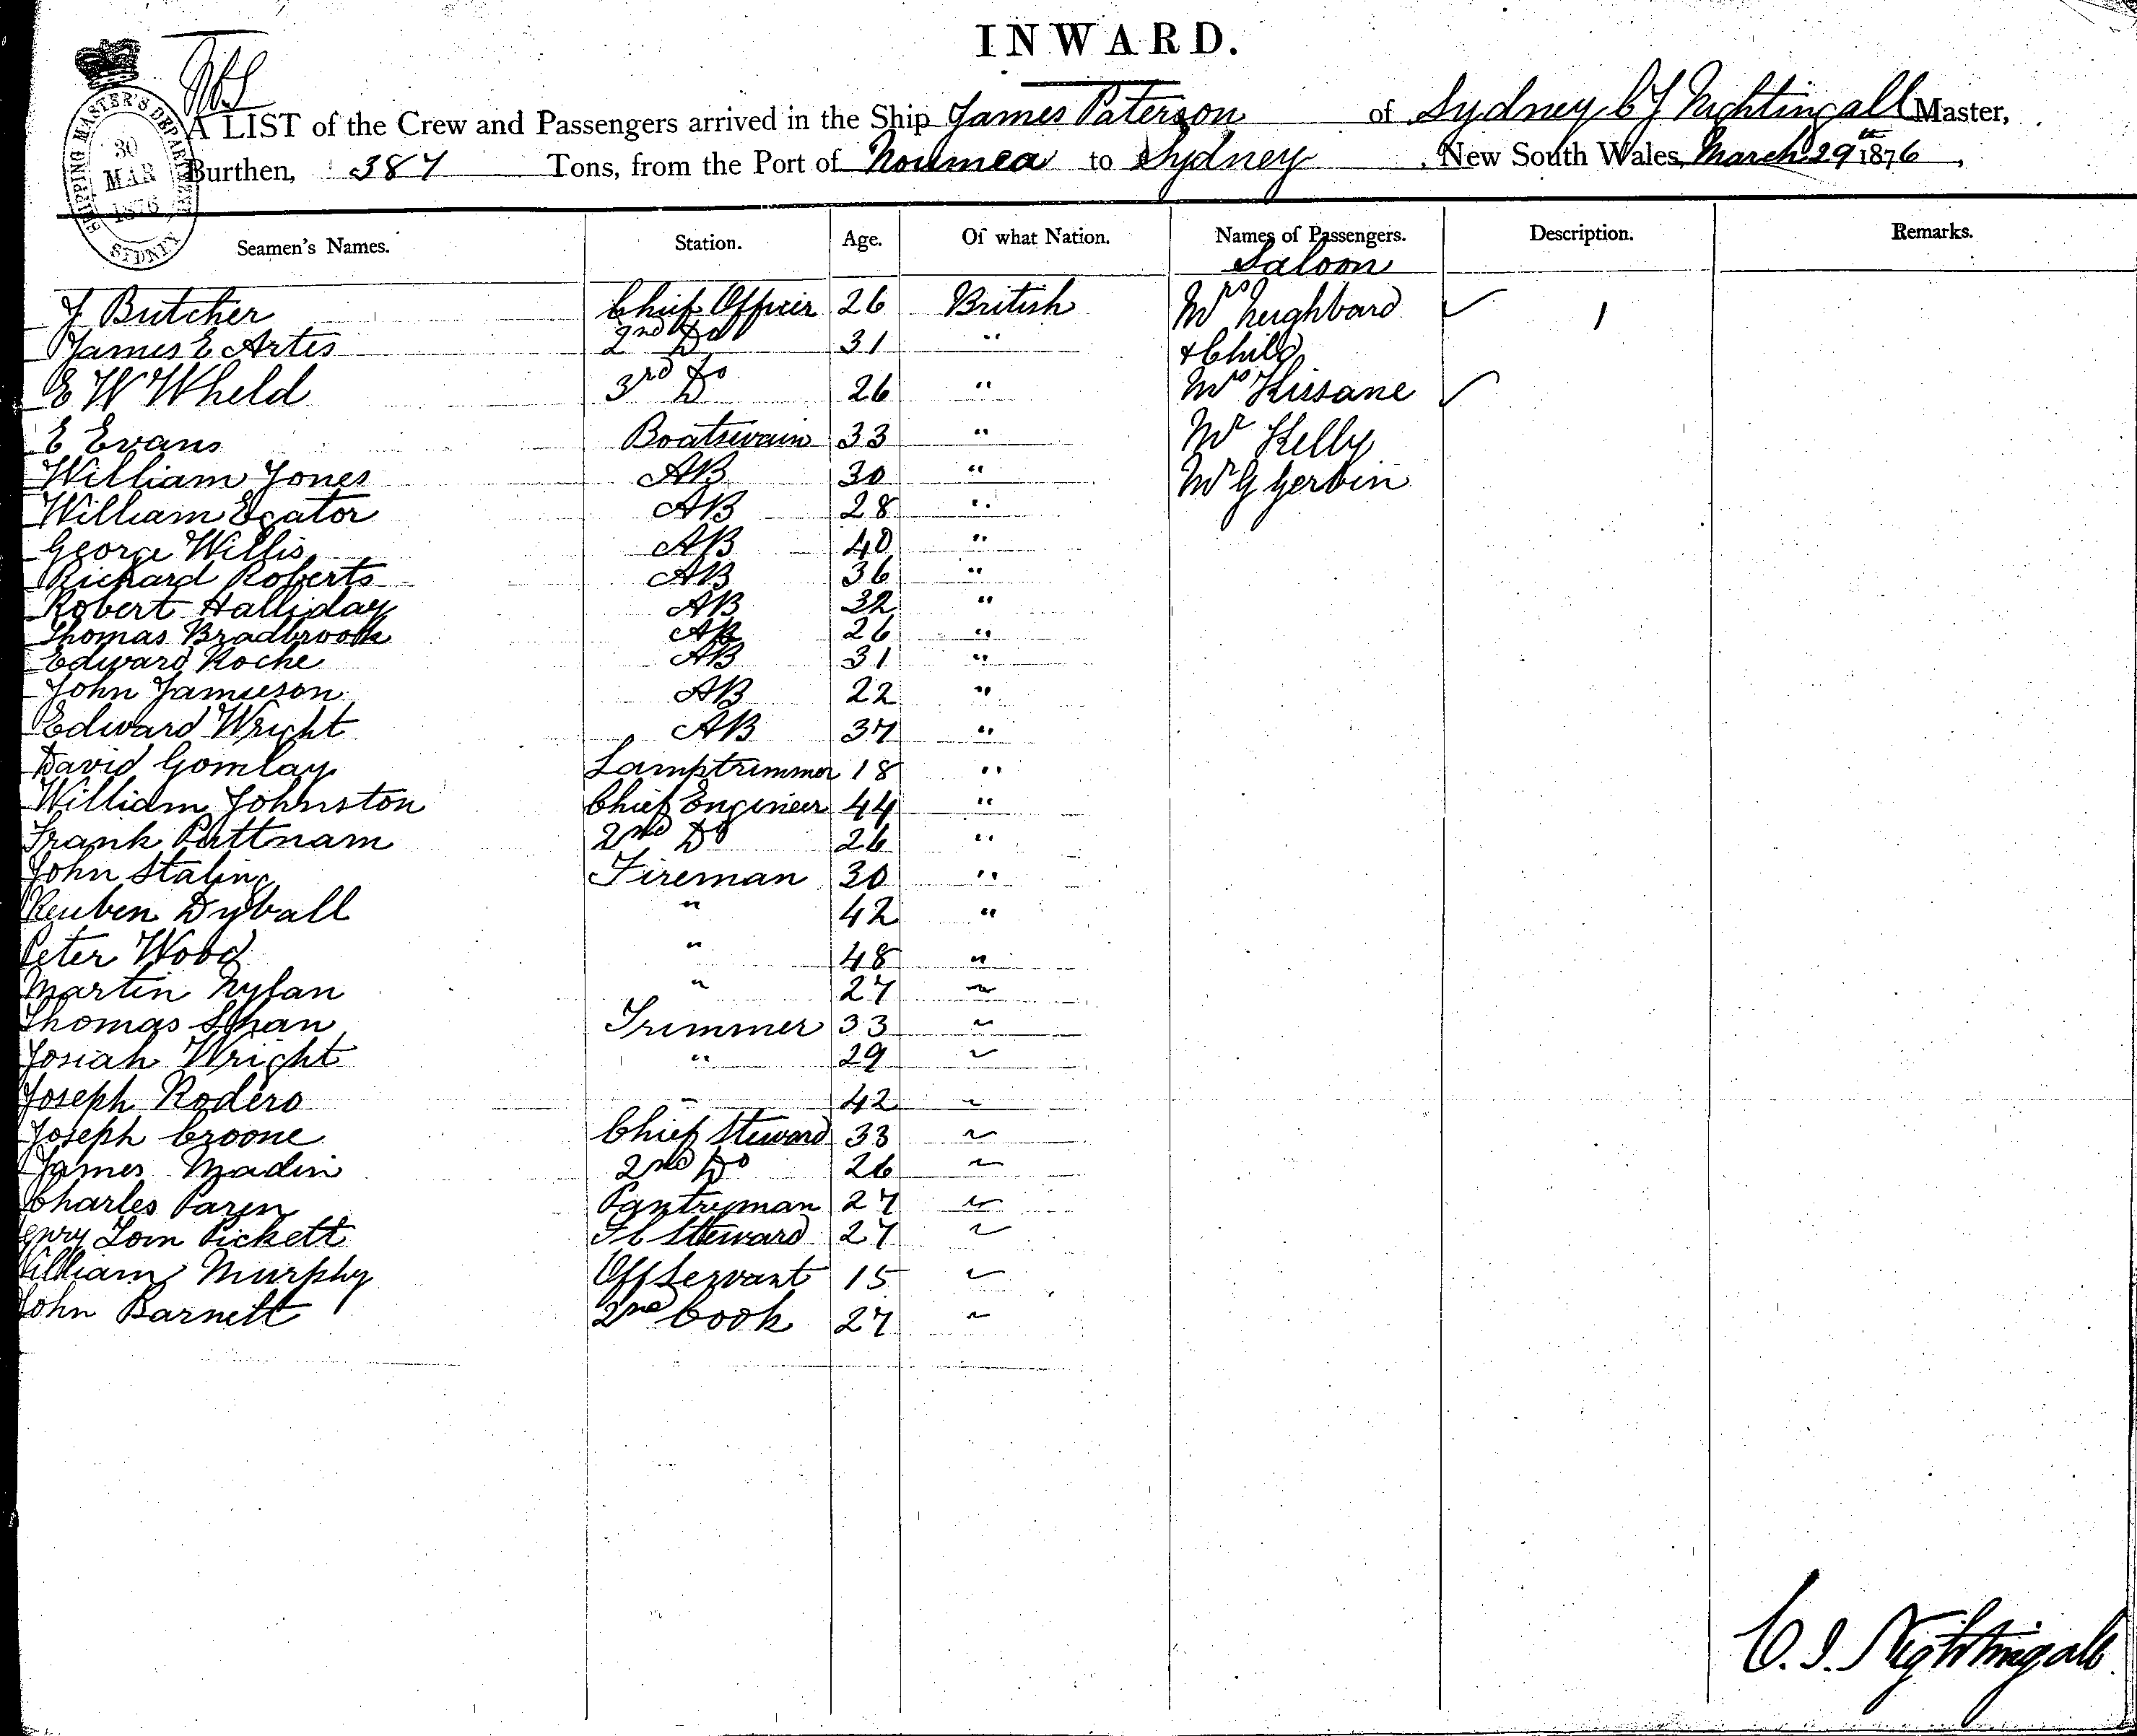 INWARD.
SHIPPING MASTER'S DEPARTMENT
30
MAR
1876
SYDNEY
A LIST of the Crew and Passengers arrived in the Ship James Paterson of Sydney C J Nightingall Master,
Burthen, 387 Tons, from the Port of Noumea to Sydney, New South Wales, March 29th 1876,
Seamen's Names. Station. Age. Of what Nation. Names of Passengers. Description. Remarks.
Saloon
J Butcher Chief Officer 26 British Mrs Neighbard 1
James E Artis 2nd Do 31 " + Child
E W Wheld 3rd Do 26 " Mrs Kissane
E Evans Boatswain 33 " Mr Kelly
William Jones AB 30 " Mr G Gerbin
William Egator AB 28 "
George Willis AB 40 "
Richard Roberts AB 36 "
Robert Halliday AB 32 "
Thomas Bradbrook AB 26 "
Edward Roche AB 31 "
John Jamieson AB 22 "
Edward Wright AB 37 "
David Gomlay Lamptrimmer 18 "
William Johnston Chief Engineer 44 "
Frank Puttnam 2nd Do 26 "
John Staling Fireman 30 "
Reuben Dyball " 42 "
Peter Wood " 48 "
Martin Nylan " 27 "
Thomas Shan Trimmer 33 "
Josiah Wright " 29 "
Joseph Rodero " 42 "
Joseph Croone Chief Steward 33 "
James Madin 2nd Do 26 "
Charles Paren Pantryman 27 "
enry Tom Pickett F C Steward 27 "
William Murphy Off Servant 15 "
John Barnett 2nd Cook 27 "
C. J. Nightingall